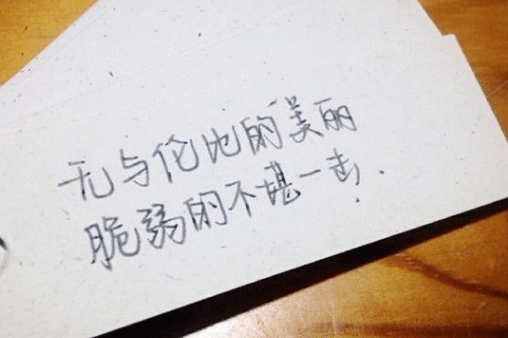 无与伦比的美丽
脆弱的不堪一击..